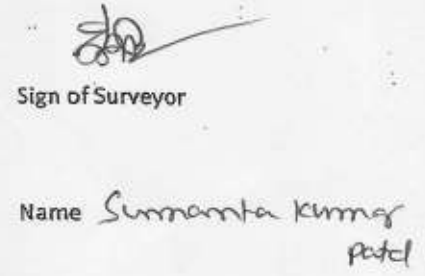 Sign of Surveyor
Name Summanta Kumar
Patel